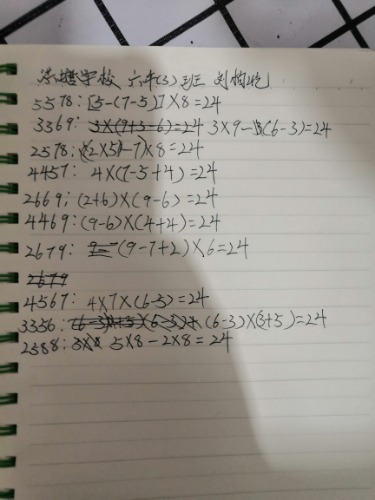 学校 六年(3)班 刘
5578:[5-(7-5)]×8=24
3369: 3×9-(6-3)=24
2578:(2×5-7)×8=24
4457: 4×(7-5+4)=24
2669:(2+6)×(9-6)=24
4469:(9-6)×(4+4)=24
2679: (9-7+2)×6=24
2679
4567: 4×7×(6-5)=24
3356: (6-3)×(3+5)=24
2588: 5×8-2×8=24